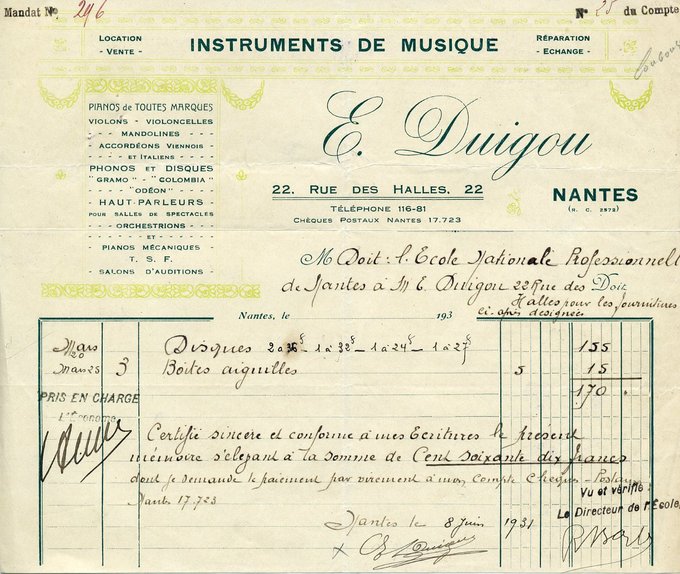 Mandat No 296
No 25 du Compte
LOCATION - VENTE -
INSTRUMENTS DE MUSIQUE
RÉPARATION - ECHANGE -
PIANOS de TOUTES MARQUES
VIOLONS - VIOLONCELLES
MANDOLINES
ACCORDÉONS VIENNOIS
ET ITALIENS
PHONOS ET DISQUES
"GRAMO" - "COLOMBIA"
"ODÉON"
HAUT-PARLEURS
POUR SALLES DE SPECTACLES
ORCHESTRIONS
ET
PIANOS MÉCANIQUES
T. S. F.
SALONS D'AUDITIONS
E. Duigou
22, RUE DES HALLES, 22
NANTES
TÉLÉPHONE 116-81
(R. C. 2572)
CHÈQUES POSTAUX NANTES 17.723
M Doit : l'Ecole Nationale Professionnelle
de Nantes à M E. Duigou 22 Rue des Doit
Halles pour les fournitures
ci-après designées
Nantes, le 193
Mars 20 Disques 2 à 36 - 1 à 32 - 1 à 24 - 1 à 27 155
Mars 25 3 Boites aiguilles 5 15
170
PRIS EN CHARGE
L'Econome
Certifié sincère et conforme à mes Ecritures le présent
mémoire s'elevant à la somme de Cent soixante dix francs
dont je demande le paiement par virement à mon Compte Chèques - Postaux
Nantes 17.723
Vu et vérifié :
Le Directeur de l'Ecole
Nantes le 8 Juin 1931